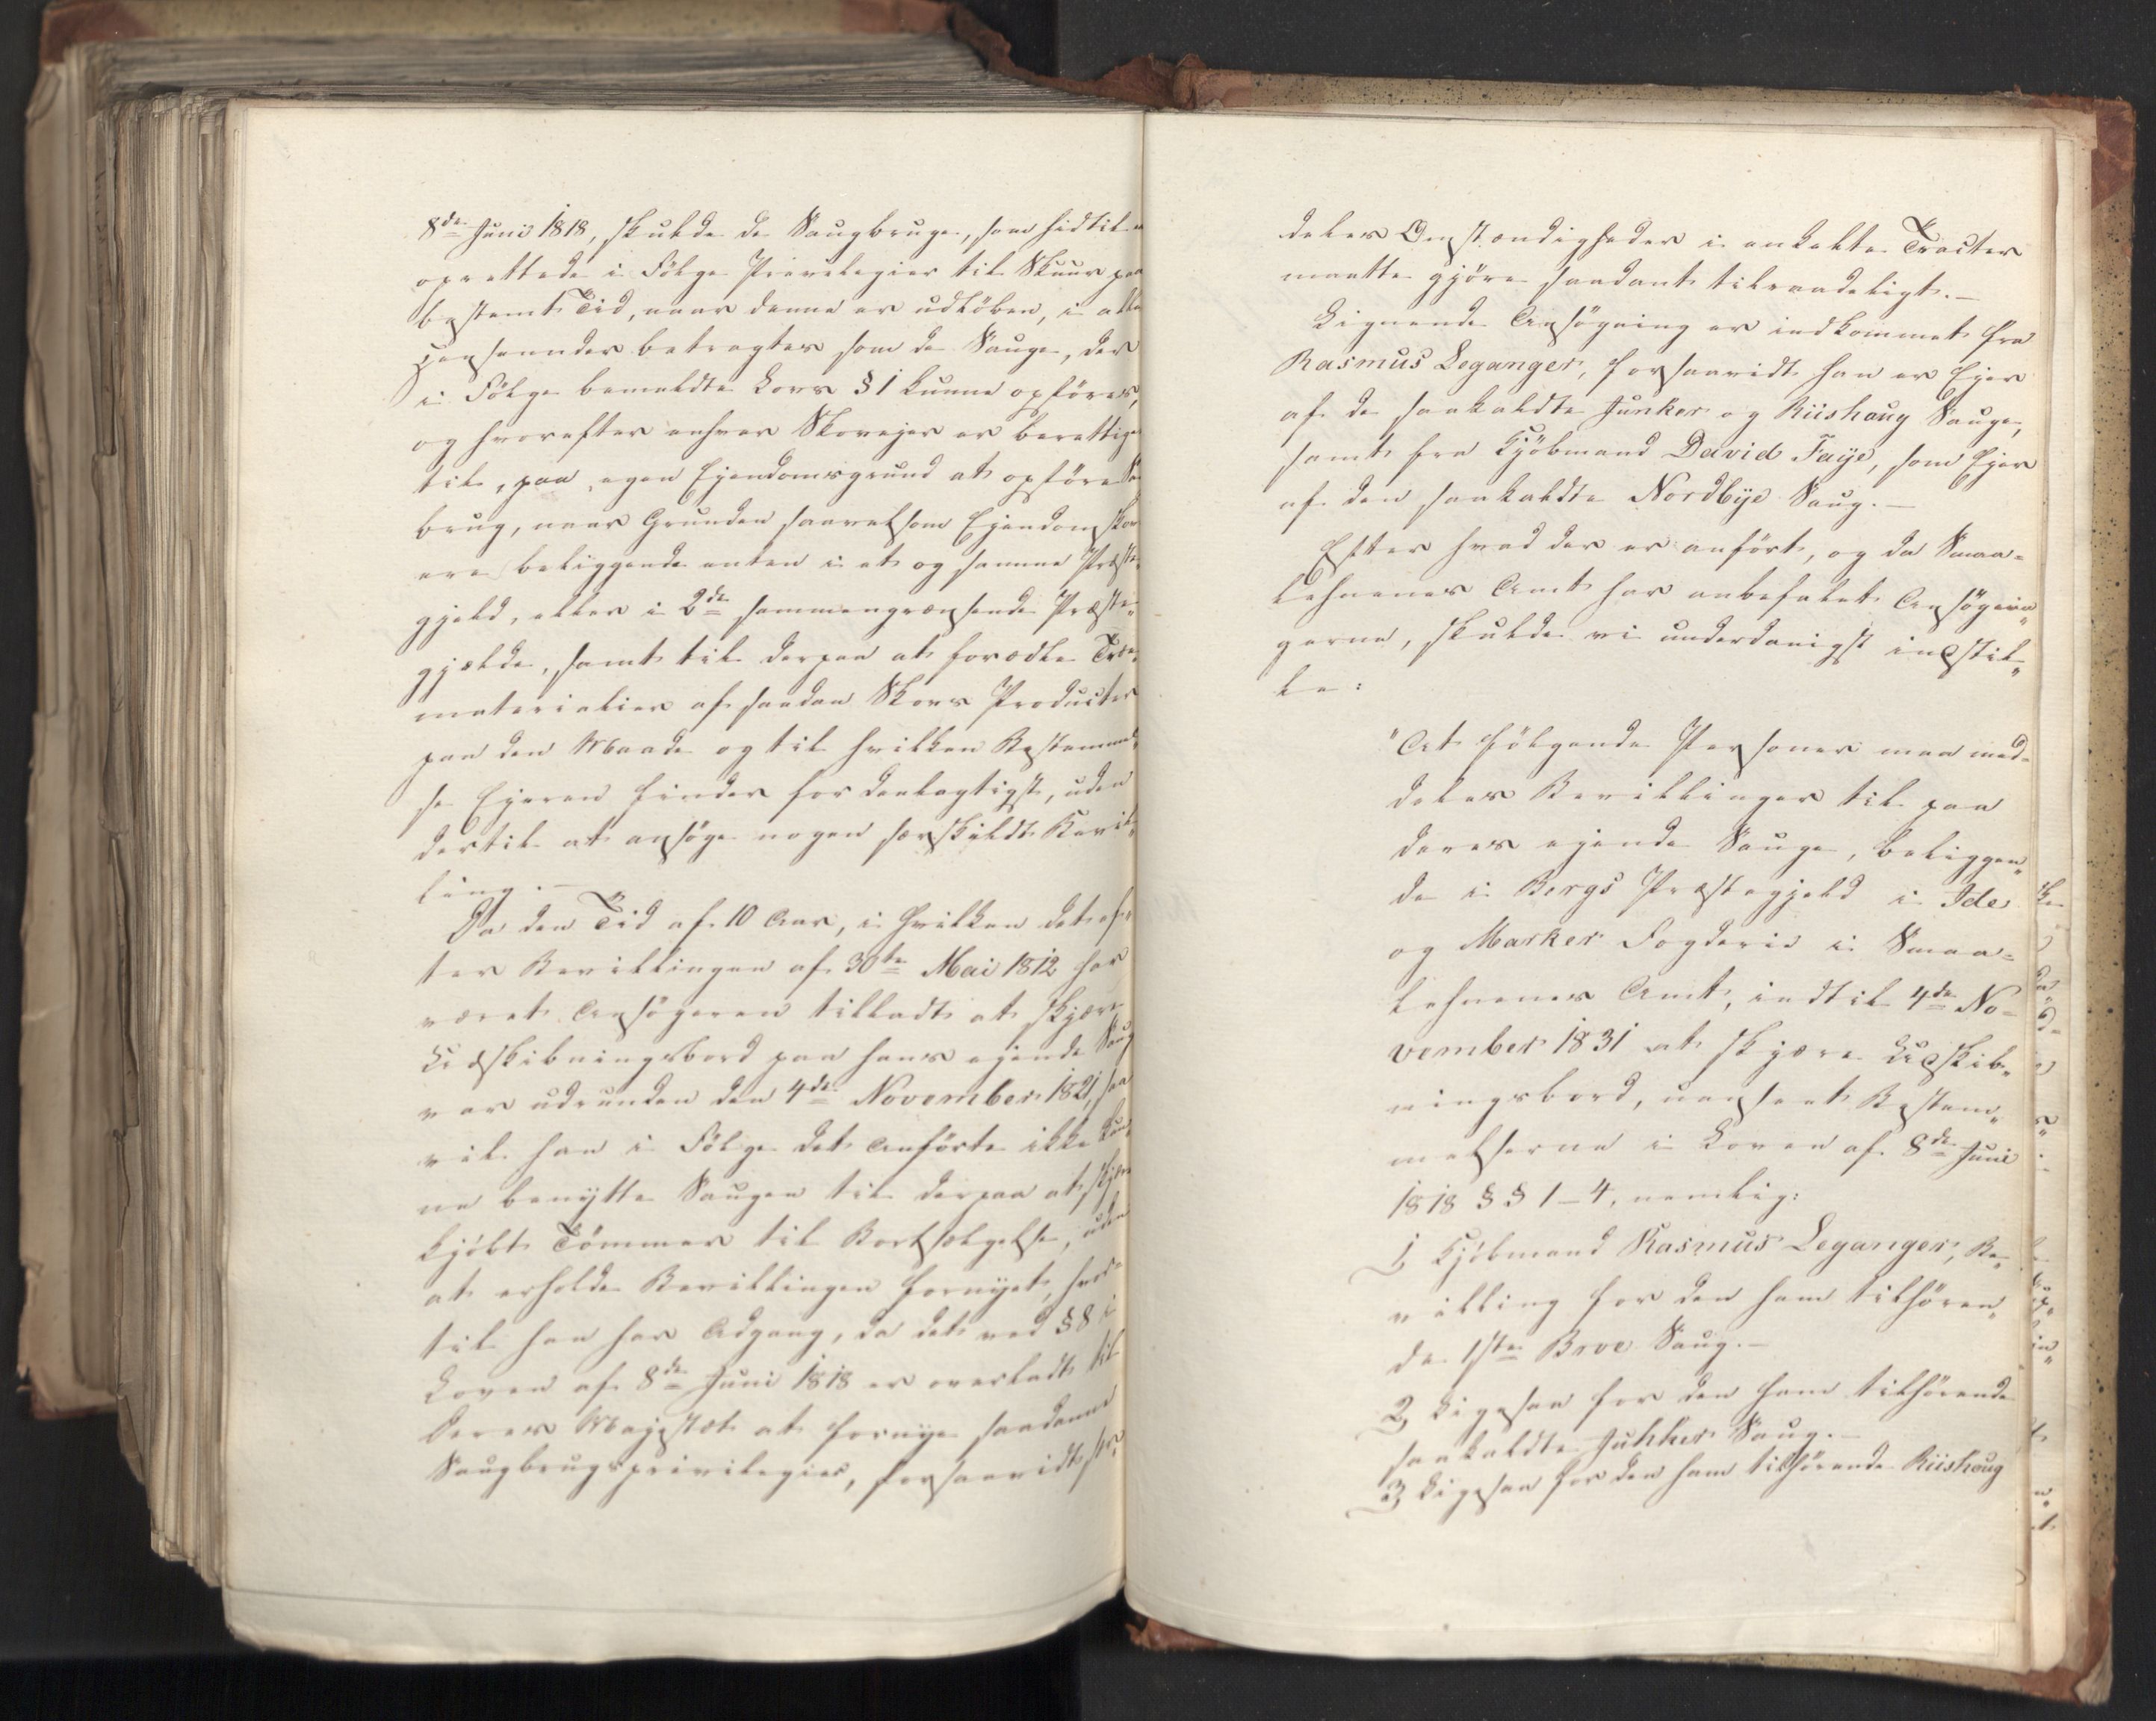 8de Juni 1818, skulde de Saugbruge, som hidtil ere
oprettede i Følge Privelegier til Skuur paa
bestemt Tid, naar denne er udløben, i alle
Henseender betragtes som de Sauge, der
i Følge bemeldte Lovs § 1 kunne opføres,
og hvorefter enhver Skovejer er berettiget
til, paa egen Ejendomsgrund at opføre Sau
brug, naar Grunden saavelsom Ejendomsskov
ere beliggende enten i et og samme Præste-
gjeld, eller i 2de sammengrændsende Præste-
gjelde, samt til derpaa at forædle Træ-
materialier af saadan Skovs Producter
paa den Maade og til hvilken Bestemmel-
se Ejeren finder for deeltagtigst, uden
dertil at ansøge nogen særskildt Bevil-
ling.-
Da den Tid af 10 Aar, i hvilken det ef-
ter Bevillingen af 30te Mai 1812 har
været Ansøgeren tilladt at skjære
Udskibningsbord paa hans ejende Saug
var udrunden den 4de November 1821, saa
vil han i Følge det Anførte ikke kun-
ne benytte Saugen til derpaa at skjære
kjøbt Tømmer til Bortsælgelse, uden
at erholde Bevillingen fornyet, hvor-
til han har Adgang, da det ved § 8 i
Loven af 8de Juni 1818 er overladt til
Deres Majestæt at fornye saadanne
Saugbrugsprivilegier, forsaavidt sær-
deles Omstændigheder i enkelte Tracter
maatte gjøre saadant tilraadeligt.-
Lignende Ansøgning er indkommet fra
Rasmus Leganger, forsaavidt han er Ejer
af de saakaldte Junker og Riishaug Sauge,
samt fra Kjøbmand David Faye, som Ejer
af den saakaldte Nordbye Saug.-
Efter hvad der er anført, og da Smaa-
lehnenes Amt har anbefalet Ansøgnin-
gerne, skulde vi underdanigst indstil-
le:
"At følgende Personer maa med-
deles Bevillinger til paa
deres ejende Sauge, beliggen-
de i Bergs Præstegjeld i Ide
og Marker Fogderie i Smaa-
lehnenes Amt, indtil 4de No-
vember 1831 at skjære Udskib-
ningsbord, uanseet Bestem-
melserne i Loven af 8de Juni
1818 §§ 1-4, nemlig:
1, Kjøbmand Rasmus Leganger, Be-
villing for den ham tilhøren-
de 1ste Brve Saug.-
2, Ligesaa for den ham tilhørende
saakaldte Junker Saug.-
3, Ligesaa for den ham tilhørende Riishaug